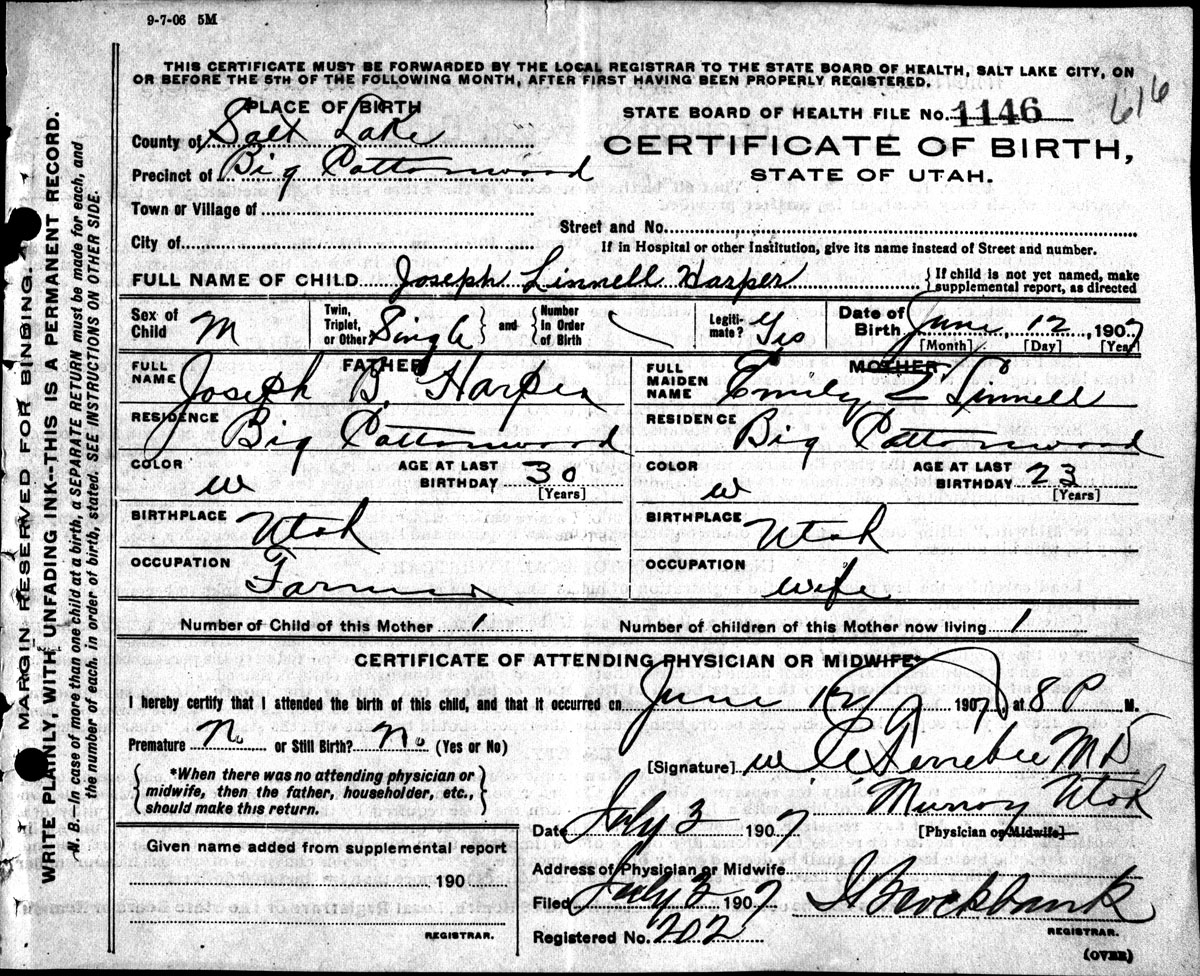 9-7-06 5M
THIS CERTIFICATE MUST BE FORWARDED BY THE LOCAL REGISTRAR TO THE STATE BOARD OF HEALTH, SALT LAKE CITY, ON
OR BEFORE THE 5TH OF THE FOLLOWING MONTH, AFTER FIRST HAVING BEEN PROPERLY REGISTERED.
616
PLACE OF BIRTH
STATE BOARD OF HEALTH FILE No. 1146
County of Salt Lake
CERTIFICATE OF BIRTH,
Precinct of Big Cottonwood
STATE OF UTAH.
Town or Village of
Street and No.
City of
If in Hospital or other Institution, give its name instead of Street and number.
FULL NAME OF CHILD Joseph Linnell Harper
If child is not yet named, make
supplemental report, as directed
Sex of Child M
Twin, Triplet, or Other Single and Number In Order of Birth
Legiti-mate? Yes
Date of Birth June 12, 1907
[Month] [Day] [Year]
FATHER
FULL NAME Joseph B. Harper
MOTHER
FULL MAIDEN NAME Emily E Linnell
RESIDENCE Big Cottonwood
RESIDENCE Big Cottonwood
COLOR w AGE AT LAST BIRTHDAY 30 [Years]
COLOR w AGE AT LAST BIRTHDAY 23 [Years]
BIRTHPLACE Utah
BIRTHPLACE Utah
OCCUPATION Farmer
OCCUPATION wife
Number of Child of this Mother 1
Number of children of this Mother now living 1
CERTIFICATE OF ATTENDING PHYSICIAN OR MIDWIFE*
I hereby certify that I attended the birth of this child, and that it occurred on June 12 1907, at 8 P M.
Premature No or Still Birth? No (Yes or No)
[Signature] MD
*When there was no attending physician or
midwife, then the father, householder, etc.,
should make this return.
Murray Utah
Date July 3 1907 [Physician or Midwife]
Given name added from supplemental report
190
REGISTRAR.
Address of Physician or Midwife
Filed July 3 1907 Brockbank
REGISTRAR.
Registered No. 202
(OVER)
MARGIN RESERVED FOR BINDING.
WRITE PLAINLY, WITH UNFADING INK--THIS IS A PERMANENT RECORD.
N. B.—In case of more than one child at a birth, a SEPARATE RETURN must be made for each, and
the number of each, in order of birth, stated. SEE INSTRUCTIONS ON OTHER SIDE.